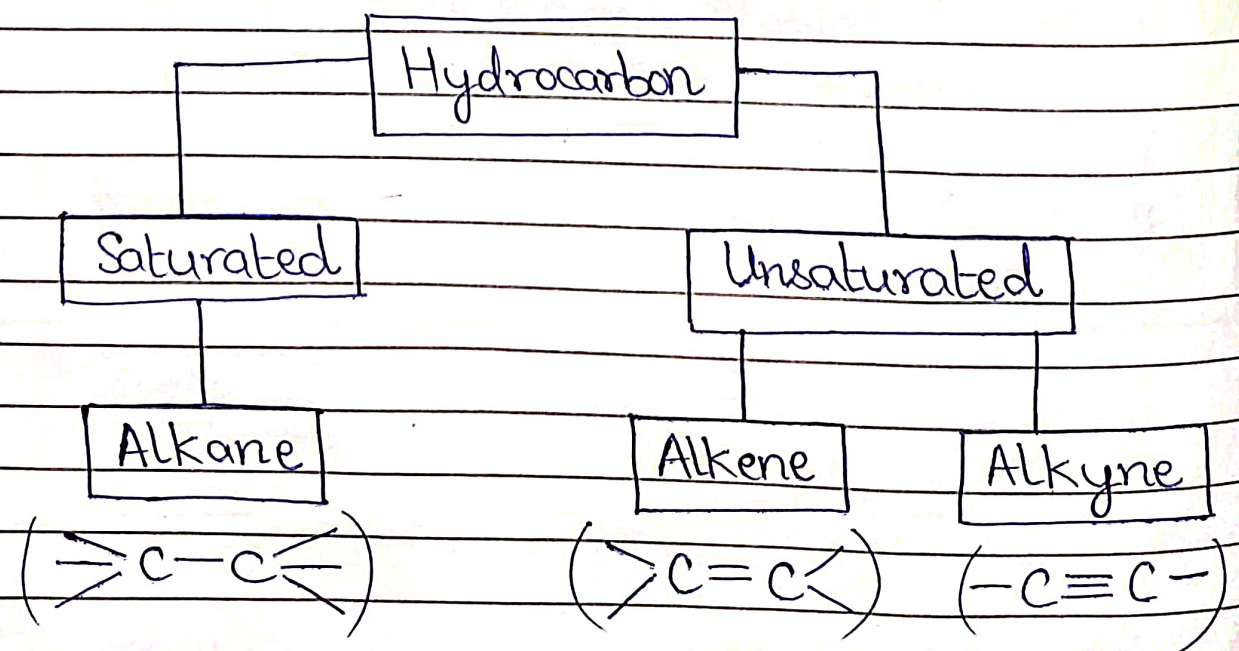 Hydrocarbon
Saturated Unsaturated
Alkane Alkene Alkyne
(⪫C-C⪪) (>C=C<) (-C≡C-)